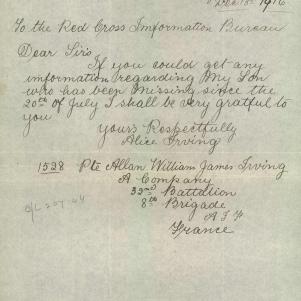 Dec 15th 1916
To the Red Cross Imformation Bureau
Dear Sirs
If you could get any
imformation regarding my Son
who has been missing since the
20th of July I shall be very gratful to
you
yours Respectfully
Alice Irving
1528 Pte Allan William James Irving
A Company
32nd Battalion
8th Brigade
A I F
France